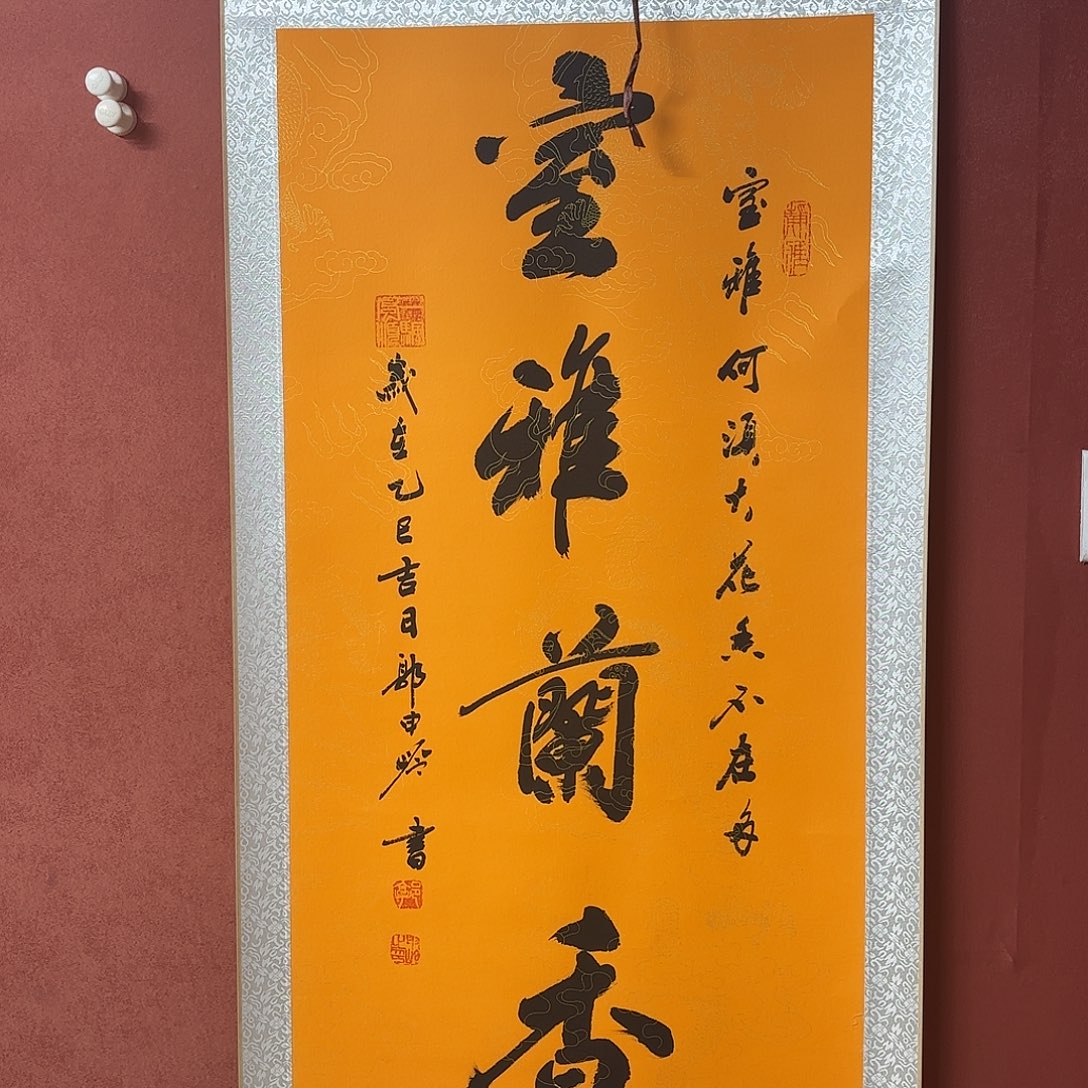 室雅何須大花香不在多
室雅蘭香
歲在乙巳吉日 中 書